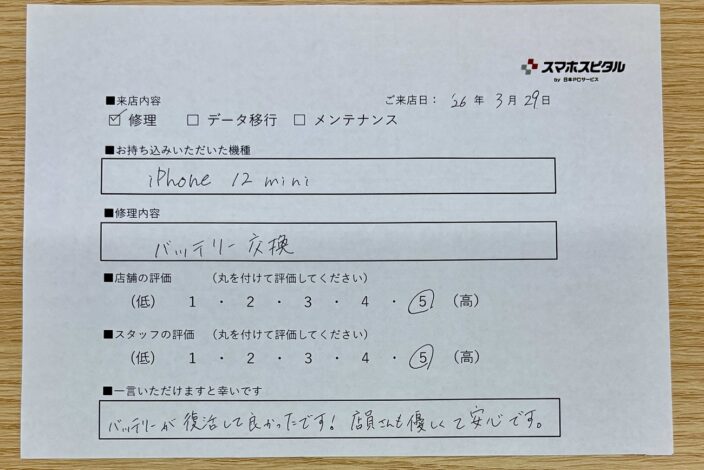 スマホスピタル
by 日本PCサービス
■来店内容 ご来店日： '26 年 3 月 29 日
☑ 修理 □ データ移行 □ メンテナンス
■お持ち込みいただいた機種
iPhone 12 mini
■修理内容
バッテリー交換
■店舗の評価 （丸を付けて評価してください）
（低） 1 ・ 2 ・ 3 ・ 4 ・ 5 （高）
■スタッフの評価 （丸を付けて評価してください）
（低） 1 ・ 2 ・ 3 ・ 4 ・ 5 （高）
■一言いただけますと幸いです
バッテリーが復活して良かったです！店員さんも優しくて安心です。